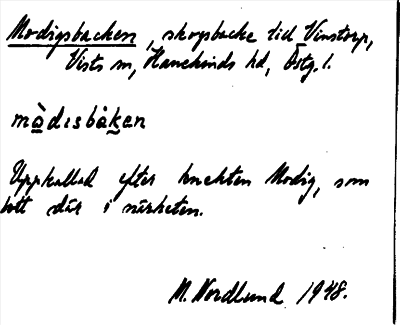 Modigsbacken, skogsbacke till Vinstorp,
Vists sn, Hanekinds hd, Östg. l.
mòdısbàkan
Uppkallad efter knekten Modig, som
bott där i närheten.
M. Nordlund 1948.